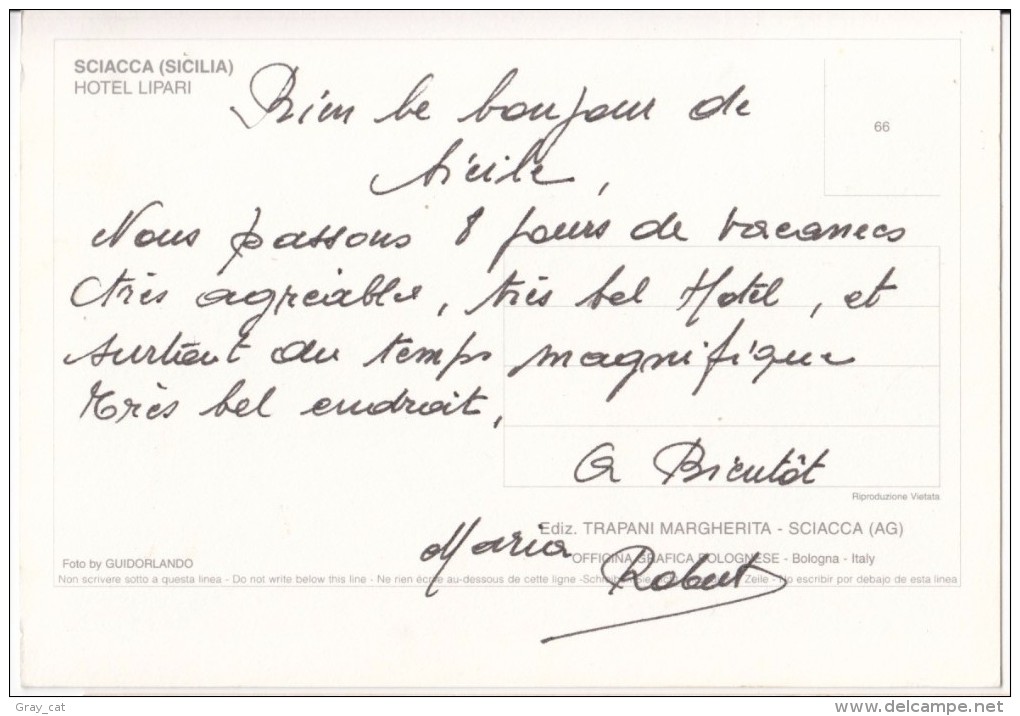 SCIACCA (SICILIA)
HOTEL LIPARI
66
Bien le bonjour de
Sicile,
Nous passons 8 jours de vacances
très agréable, très bel Hotel, et
surtout du temps magnifique
très bel endroit,
A Bientôt
Riproduzione Vietata
Maria Robert
Ediz. TRAPANI MARGHERITA - SCIACCA (AG)
OFFICINA GRAFICA BOLOGNESE - Bologna - Italy
Foto by GUIDORLANDO
Non scrivere sotto a questa linea - Do not write below this line - Ne rien écrire au-dessous de cette ligne - Zeile - No escribir por debajo de esta linea
Gray_cat
http://www.delcampe.net